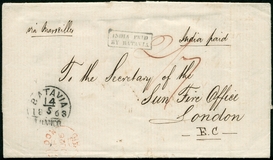 via Marseilles
INDIA PAID
India paid
BATAVIA
14
5
1863
To the Secretary of the
Sun Fire Office
London
E.C